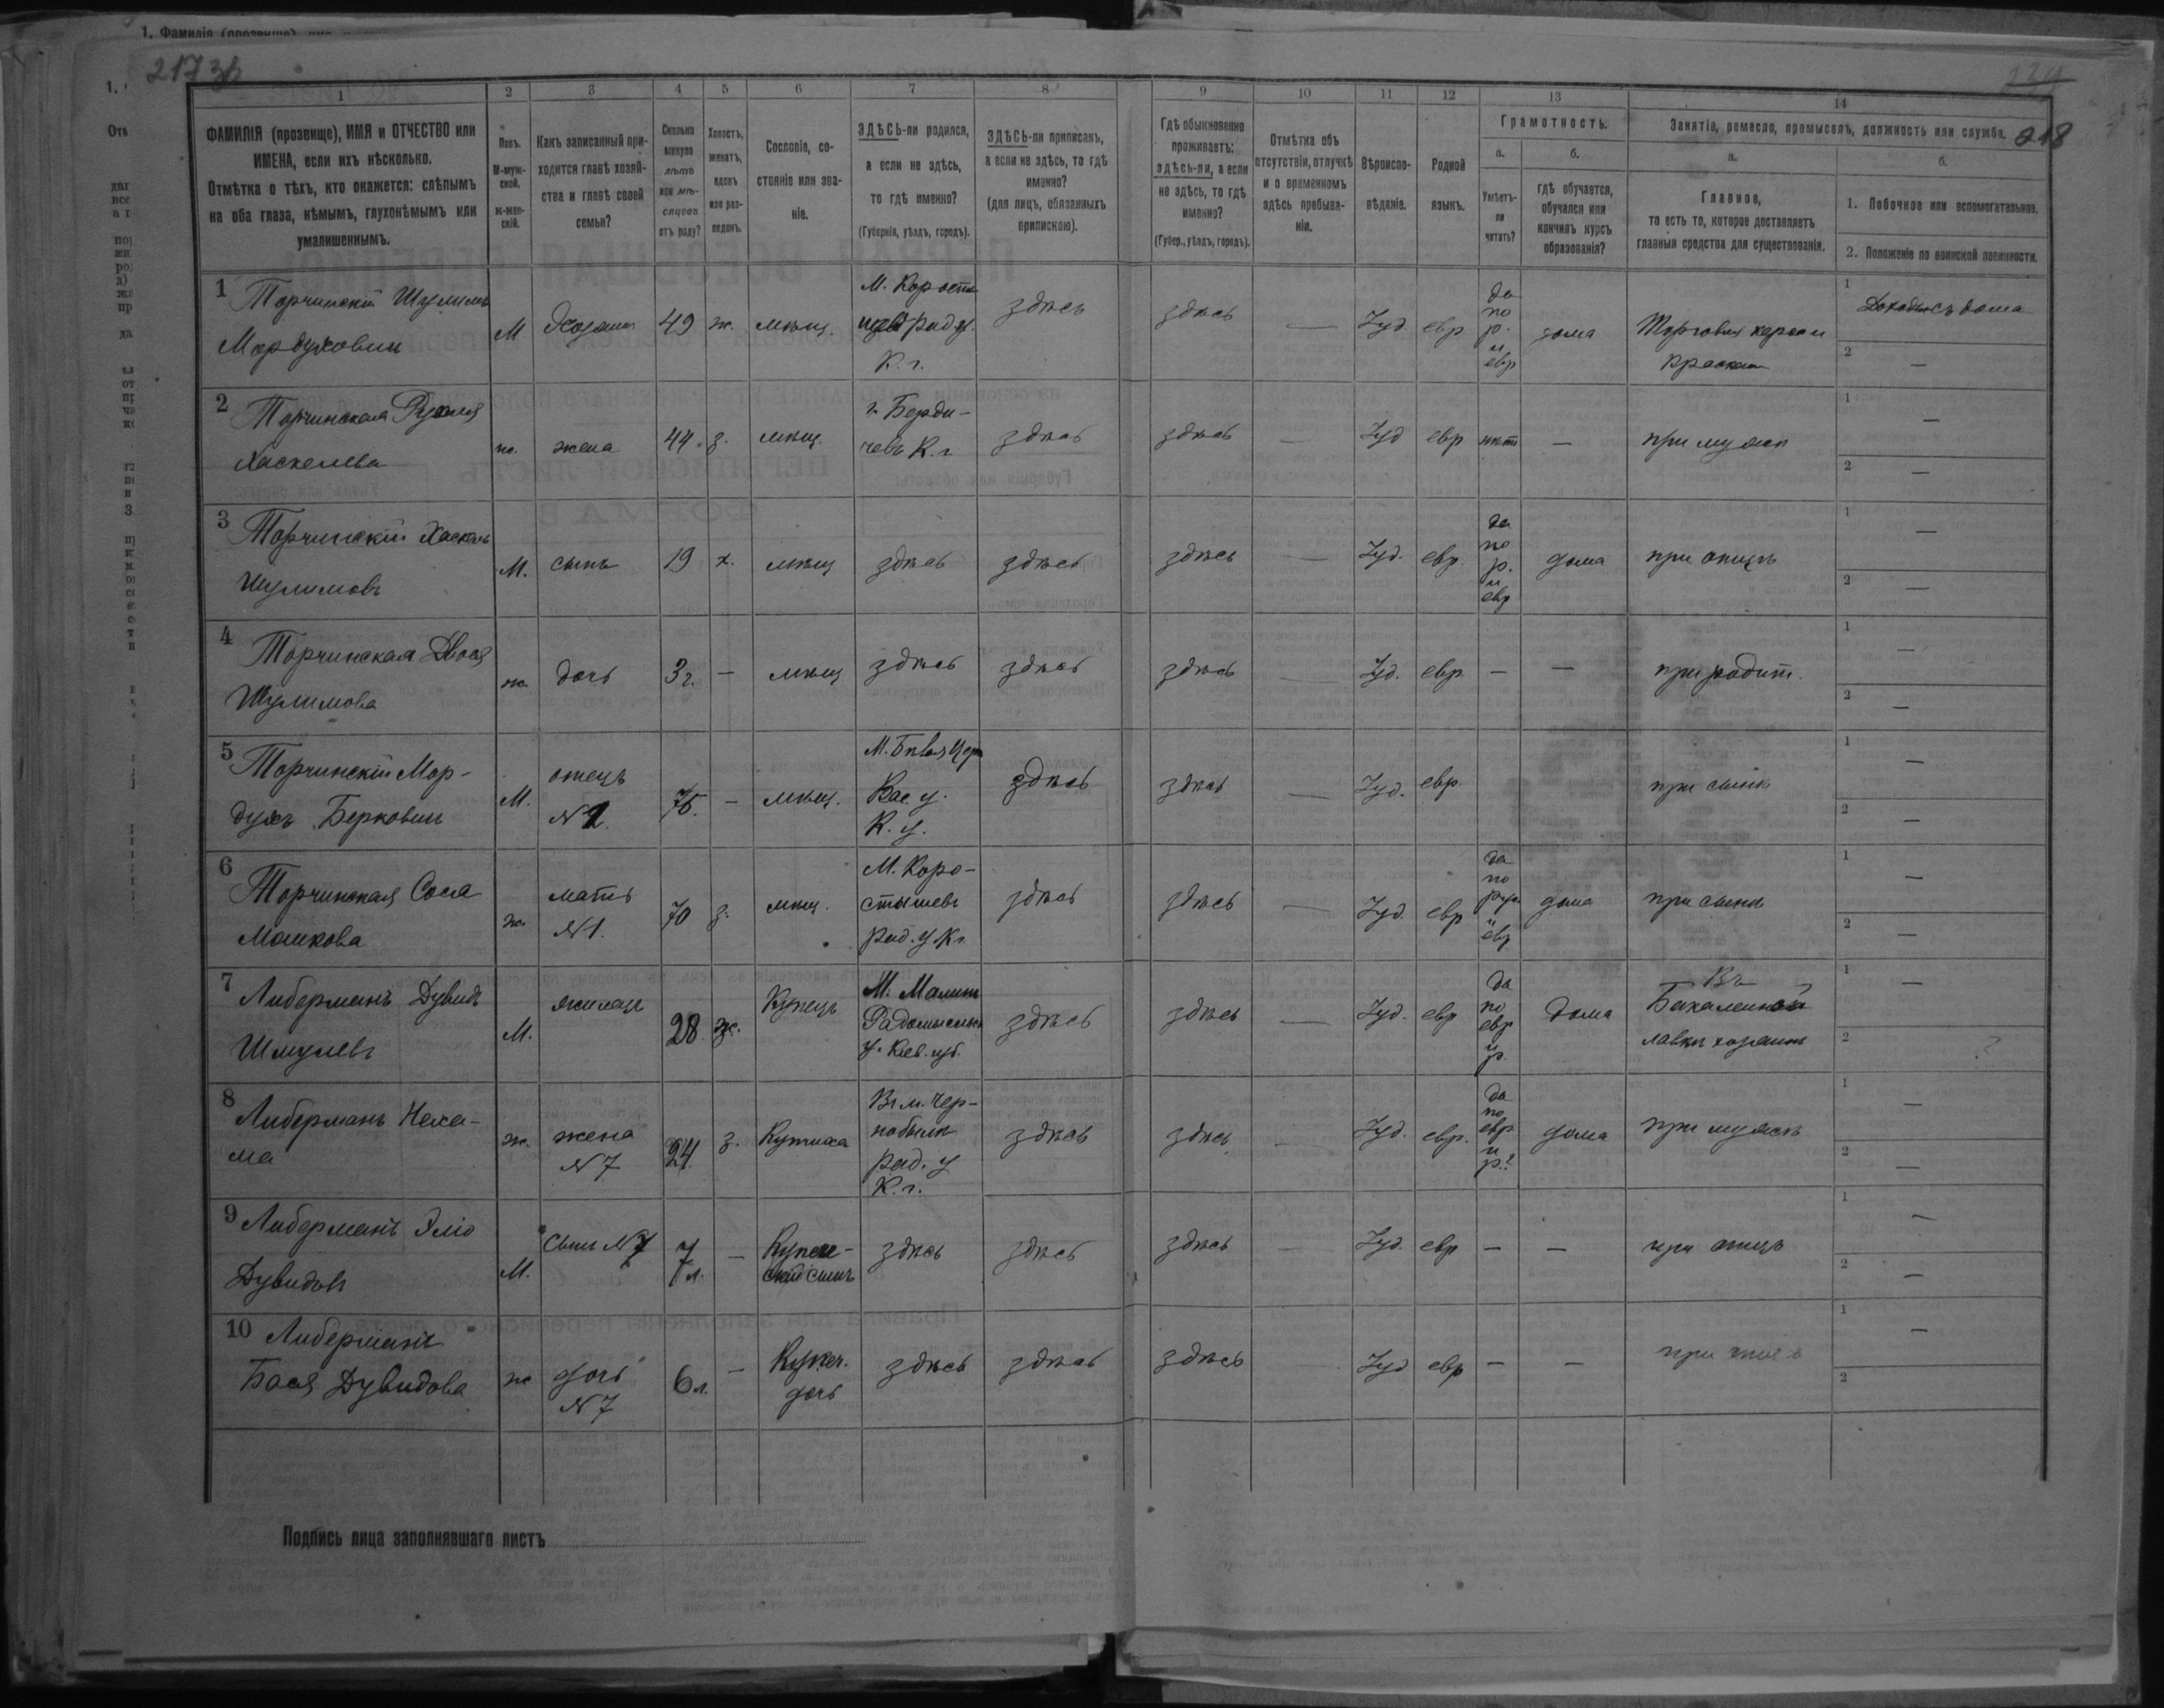 217 об
218
1
2
3
4
5
6
7
8
9
10
11
12
13
14
ФАМИЛІЯ (прозвище), ИМЯ и ОТЧЕСТВО или
ИМЕНА, если ихъ нѣсколько.
Отмѣтка о тѣхъ, кто окажется: слѣпымъ
на оба глаза, нѣмымъ, глухонѣмымъ или
умалишеннымъ.
Полъ.
М-муж-
ской.
ж-жен-
скій.
Какъ записанный при-
ходится главѣ хозяй-
ства и главѣ своей
семьи?
Сколько
минуло
лѣтъ
или мѣ-
сяцовъ
отъ роду?
Холостъ,
женатъ,
вдовъ
или раз-
веденъ.
Сословіе, со-
стояніе или зва-
ніе.
ЗДѢСЬ-ли родился,
а если не здѣсь,
то гдѣ именно?
(Губернія, уѣздъ, городъ).
ЗДѢСЬ-ли приписанъ,
а если не здѣсь, то гдѣ
именно?
(для лицъ, обязанныхъ
припискою).
Гдѣ обыкновенно
проживаетъ:
здѣсь-ли, а если
не здѣсь, то гдѣ
именно?
(Губер., уѣздъ, городъ).
Отмѣтка объ
отсутствіи, отлучкѣ
и о временномъ
здѣсь пребыва-
ніи.
Вѣроиспо-
вѣданіе.
Родной
языкъ.
Грамотность.
а.
Умѣетъ-
ли
читать?
б.
гдѣ обучается,
обучался или
кончилъ курсъ
образованія?
Занятіе, ремесло, промыселъ, должность или служба.
а.
Главное,
то есть то, которое доставляетъ
главныя средства для существованія.
б.
1. Побочное или вспомогательное.
2. Положеніе по воинской повинности.
1 Торчинскій Шулимъ
Мордуховичъ
М
Хозяинъ
49
ж.
мѣщ.
М. Корости
шевъ Рад у.
К. г.
здѣсь
здѣсь
—
Іуд.
евр
да
по
р.
и
евр
дома
Торговля керос и
краскам
1 Доходъ съ дома
2 —
2 Торчинская Рухля
Хаскелева
ж.
жена
44.
з.
мѣщ.
г. Берди-
чевъ К. г
здѣсь
здѣсь
—
Іуд
евр
нѣт
—
при мужѣ
1 —
2 —
3 Торчинскій Хаскель
Шулимовъ
М.
сынъ
19
х.
мѣщ
здѣсь
здѣсь
здѣсь
—
Іуд.
евр.
да
по
р.
и
евр
дома
при отцѣ
1 —
2 —
4 Торчинская Двося
Шулимова
ж.
дочь
3 г.
—
мѣщ
здѣсь
здѣсь
здѣсь
—
Іуд.
евр.
—
—
при родит.
1 —
2 —
5 Торчинскій Мор-
духъ Берковичъ
М.
отецъ
N 1.
75.
—
мѣщ.
М. Бѣлая Церк
Вас. у.
К. г.
здѣсь
здѣсь
—
Іуд.
евр.
при сынѣ
1 —
2 —
6 Торчинская Сося
Мошкова
ж.
мать
N 1.
70
з.
мѣщ.
М. Коро-
стышевъ
рад. у К г.
здѣсь
здѣсь
—
Іуд.
евр
да
по
рус
и
евр
дома
при сынѣ
1 —
2 —
7 Либерманъ Дувидъ
Шмулевъ
М.
жилецъ
28.
ж.
Купецъ
М. Малинъ
Радомысльск
у. Кіев. губ.
здѣсь
здѣсь
—
Іуд.
евр
да
по
евр
и
р.
дома
Въ
Бакалейной
лавкѣ хозяинъ
1 —
2 ?
8 Либерманъ Неха-
ма
ж.
жена
N 7
24.
з.
Купчиха
Въ м. Чер-
нобылѣ
рад. у
К. г.
здѣсь
здѣсь
—
Іуд.
евр.
да
по
евр.
и
р.
дома
при мужѣ
1 —
2 —
9 Либерманъ Эліо
Дувидовъ
М.
Сынъ N 7
7 л.
—
Купече-
скій сынъ
здѣсь
здѣсь
здѣсь
—
Іуд.
евр
—
—
при отцѣ
1 —
2 —
10 Либерманъ
Бася Дувидова
ж
дочь
N 7
6 л.
—
Купеч.
дочь
здѣсь
здѣсь
здѣсь
Іуд
евр
—
—
при отцѣ
1 —
2
Подпись лица заполнявшаго листъ